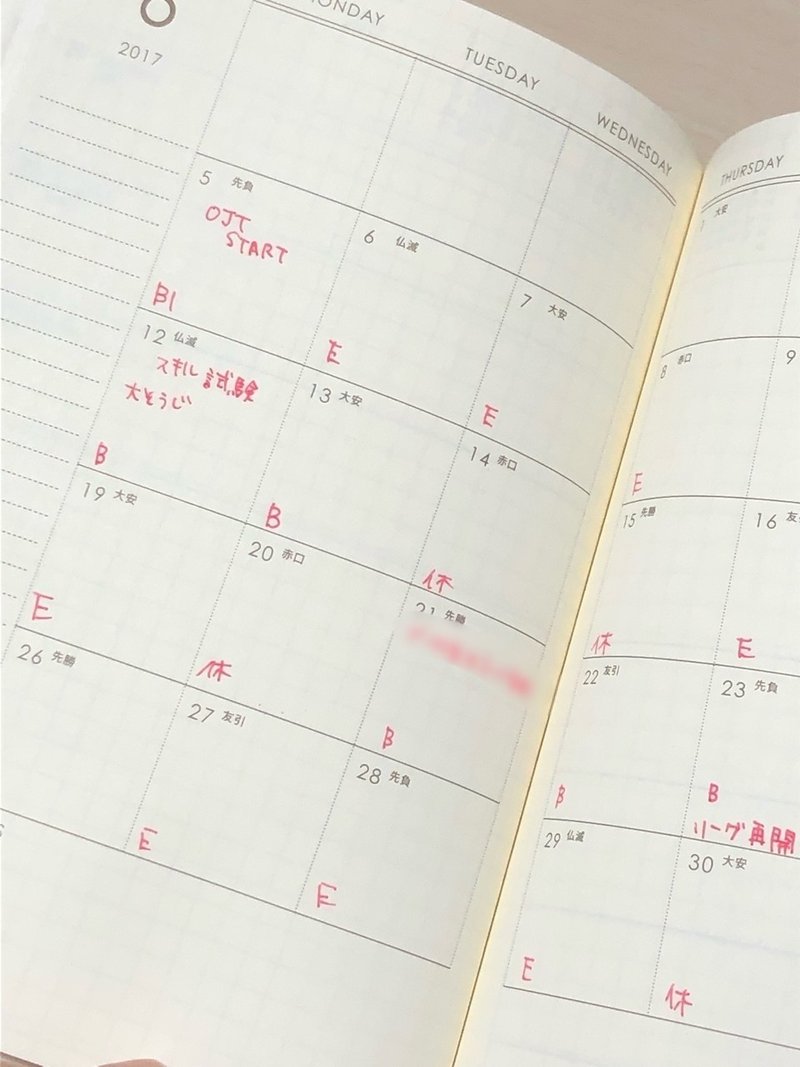 2017
MONDAY
TUESDAY
WEDNESDAY
THURSDAY
1 大安
5 先負
OJT
START
B1
6 仏滅
E
7 大安
E
8 赤口
E
9
12 仏滅
スキル試験
大そうじ
B
13 大安
B
14 赤口
休
15 先勝
休
16 友
E
19 大安
E
20 赤口
休
21 先勝
B
22 友引
B
23 先負
B
リーグ再開
26 先勝
27 友引
E
28 先負
E
29 仏滅
E
30 大安
休